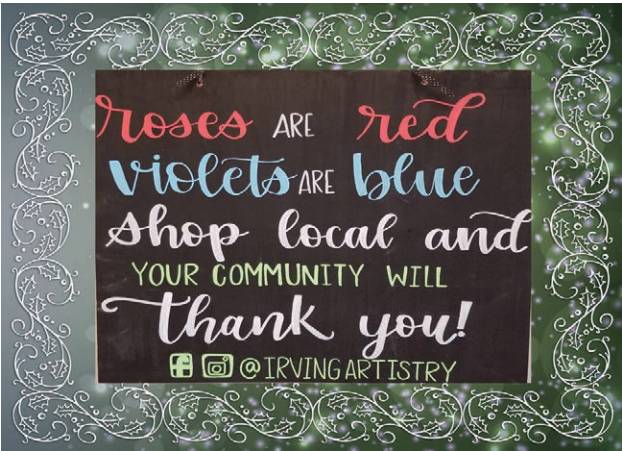 roses ARE red
violets ARE blue
shop local and
YOUR COMMUNITY WILL
thank you!
@IRVINGARTISTRY